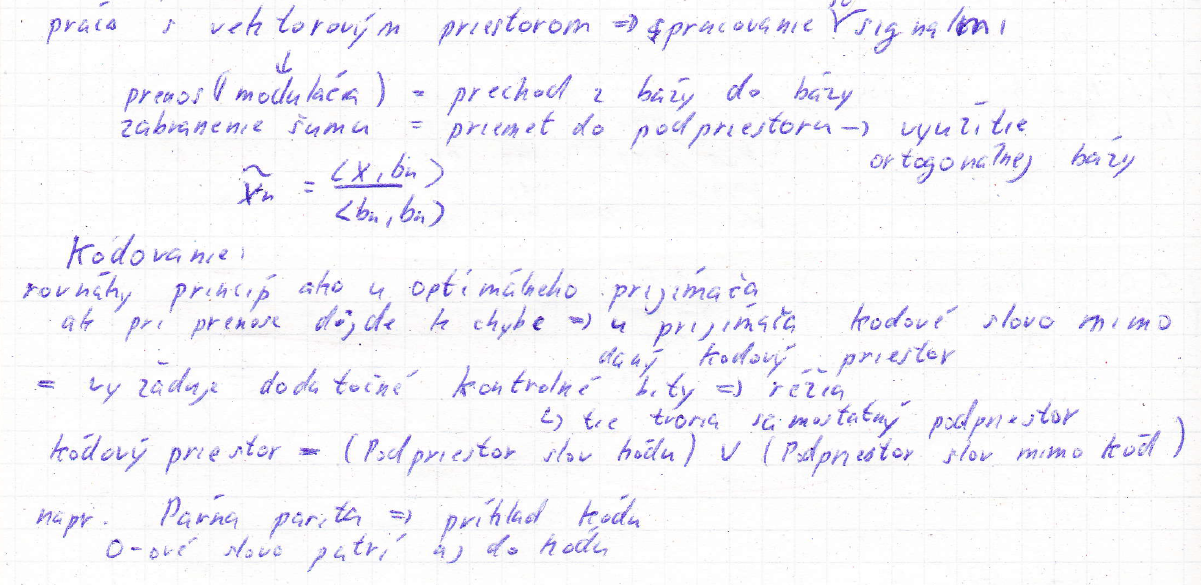 práca s vektorovým priestorom => spracovanie so signálmi
↓
prenos (modulácia) = prechod z bázy do bázy
zabranenie šumu = priemet do podpriestoru -> využitie
ortogonálnej bázy
x̃n = <x, bn> / <bn, bn>
Kódovanie:
rovnáky princíp ako u optimálneho prijímača
ak pri prenose dôjde k chybe => u prijímača kodové slovo mimo
daný kodový priestor
= vyžáduje dodatočné kontrolné bity => réžia
↳ tie tvoria samostatný podpriestor
kódový priestor = (Podpriestor slov kódu) ∨ (Podpriestor slov mimo kód)
napr. Párna parita => príklad kódu
0-ové slovo patrí aj do kódu